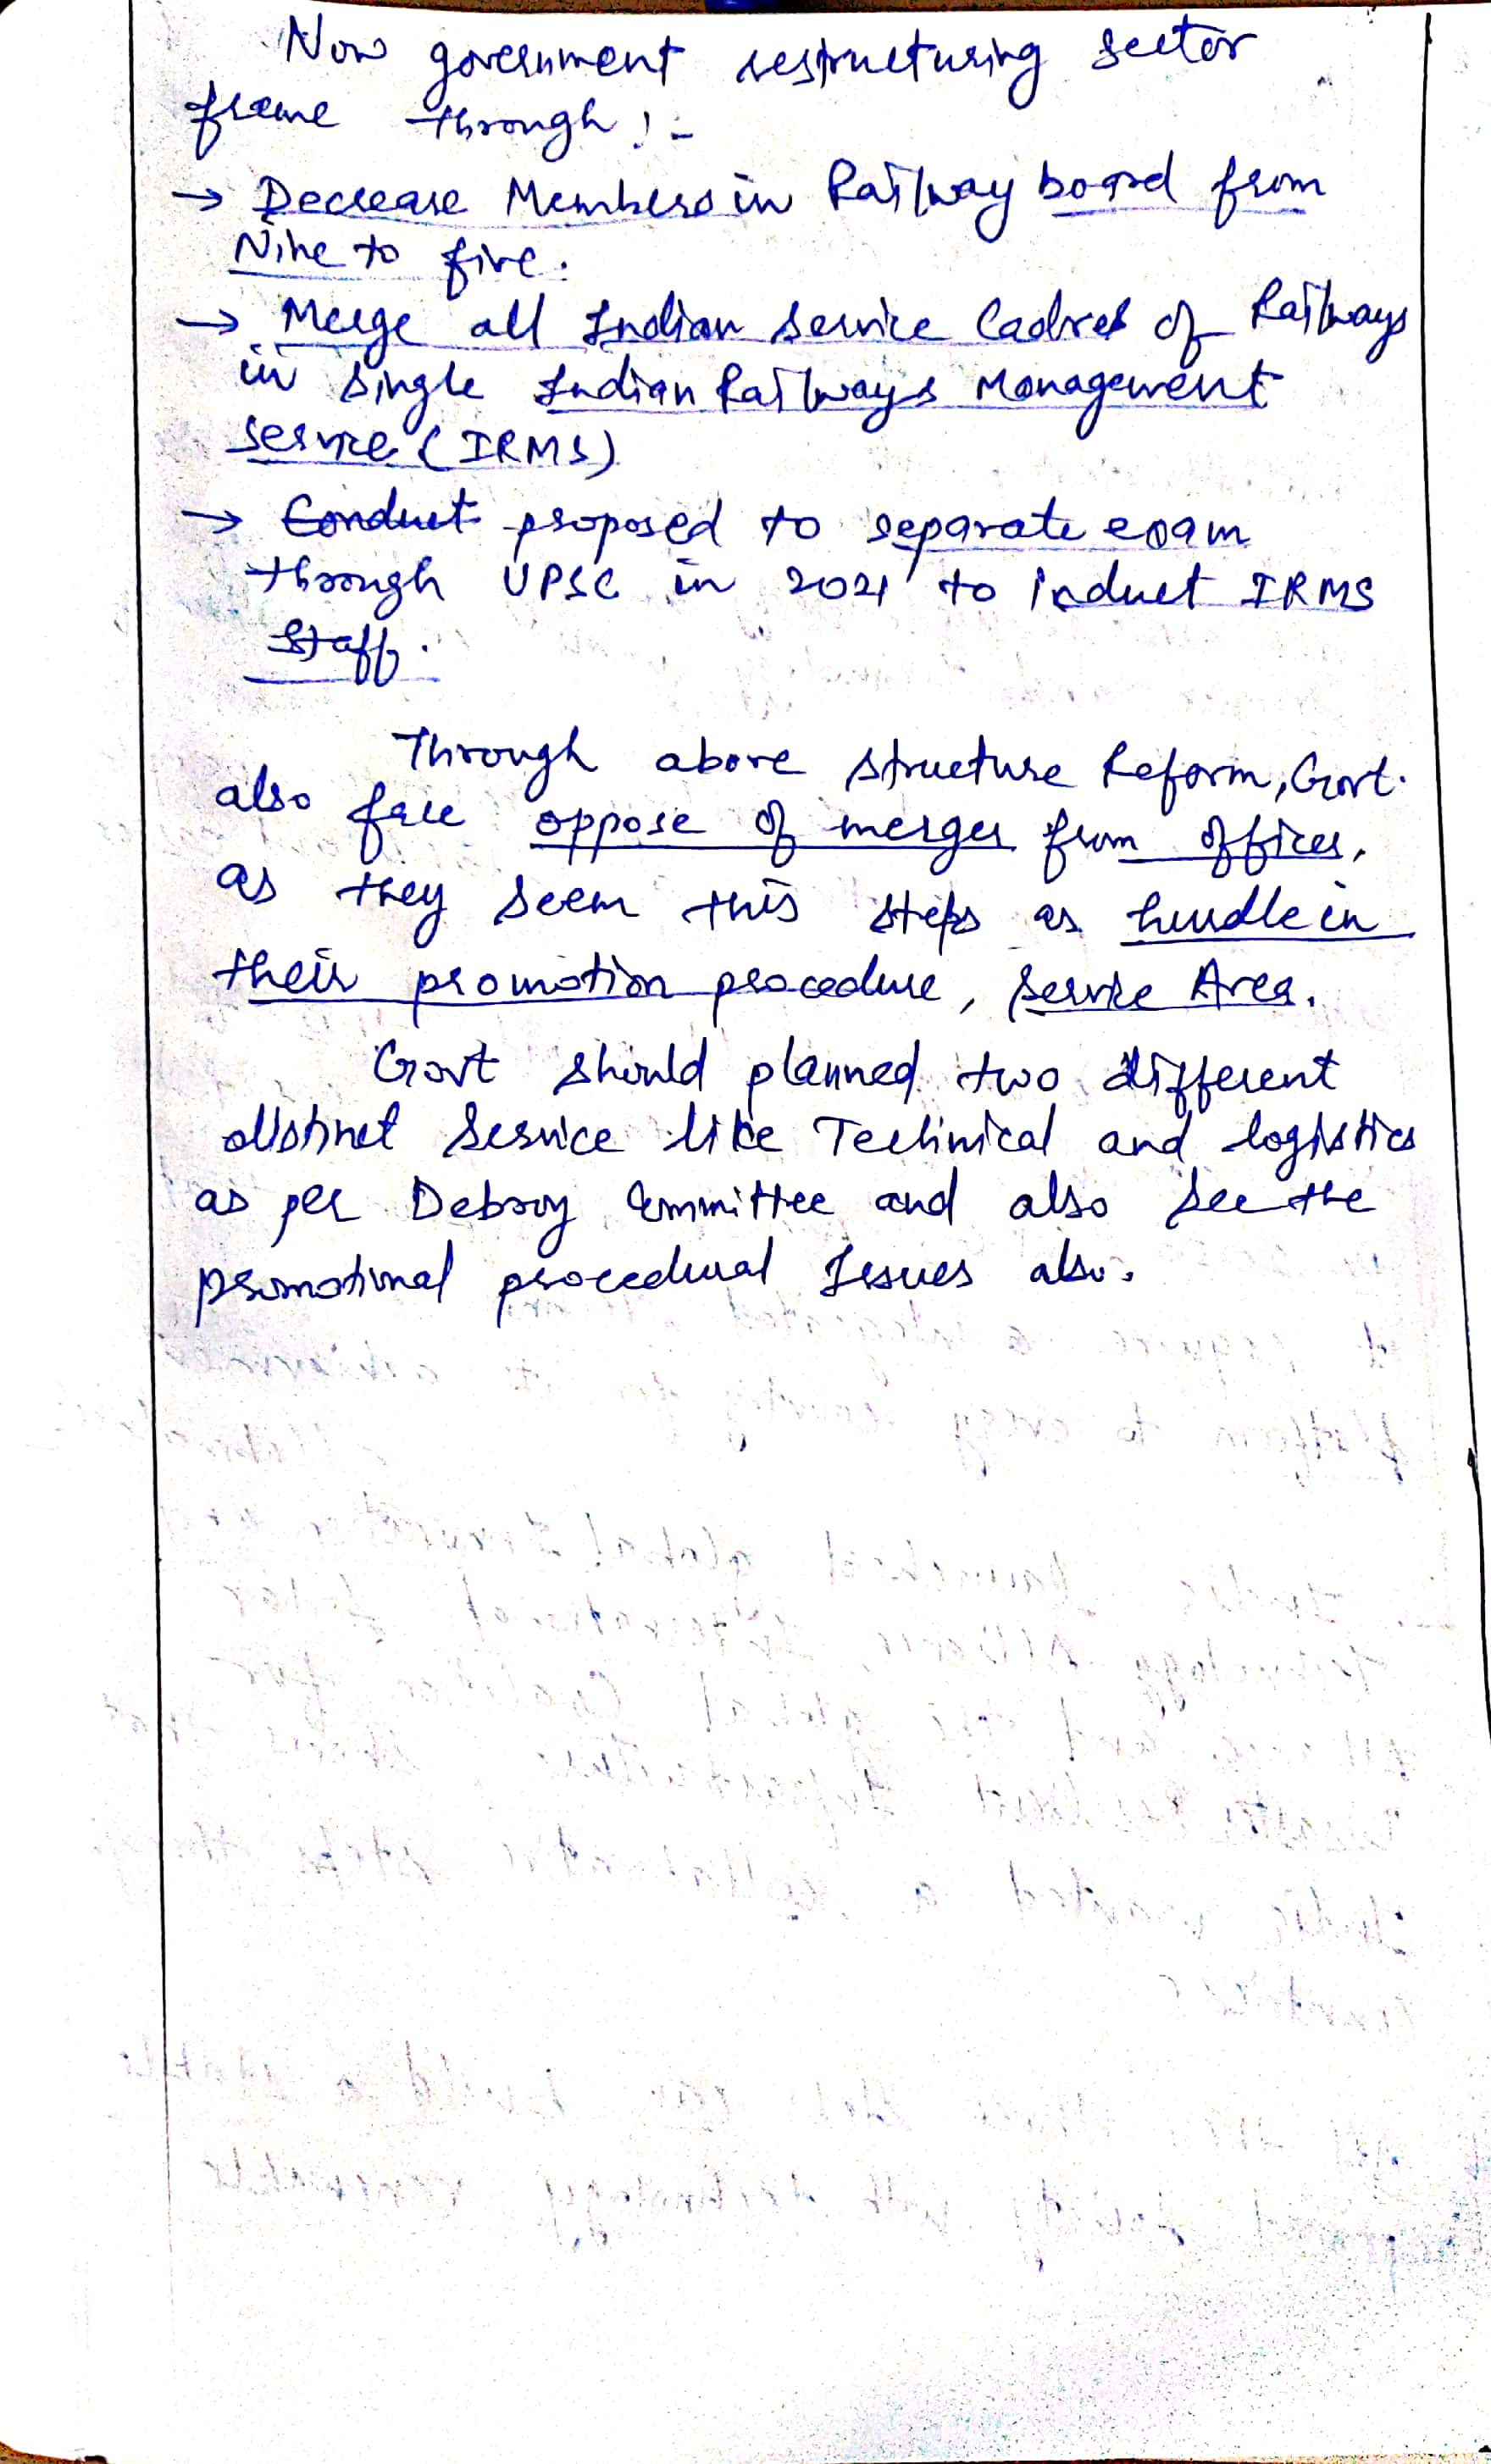 Now government restructuring sector
frame through :-
→ Decrease Members in Railway board from
Nine to five.
→ Merge all Indian service Cadres of Railways
in single Indian Railways Management
service (IRMS)
→ Conduct proposed to separate exam
through UPSC in 2021 to induct IRMS
Staff.
Through above structure Reform, Govt.
also face oppose of merger from officer,
as they seem this steps as hurdle in
their promotion procedure, service Area.
Govt should planned two different
distinct service like Technical and logistics
as per Debroy Committee and also see the
promotional procedural Issues also.